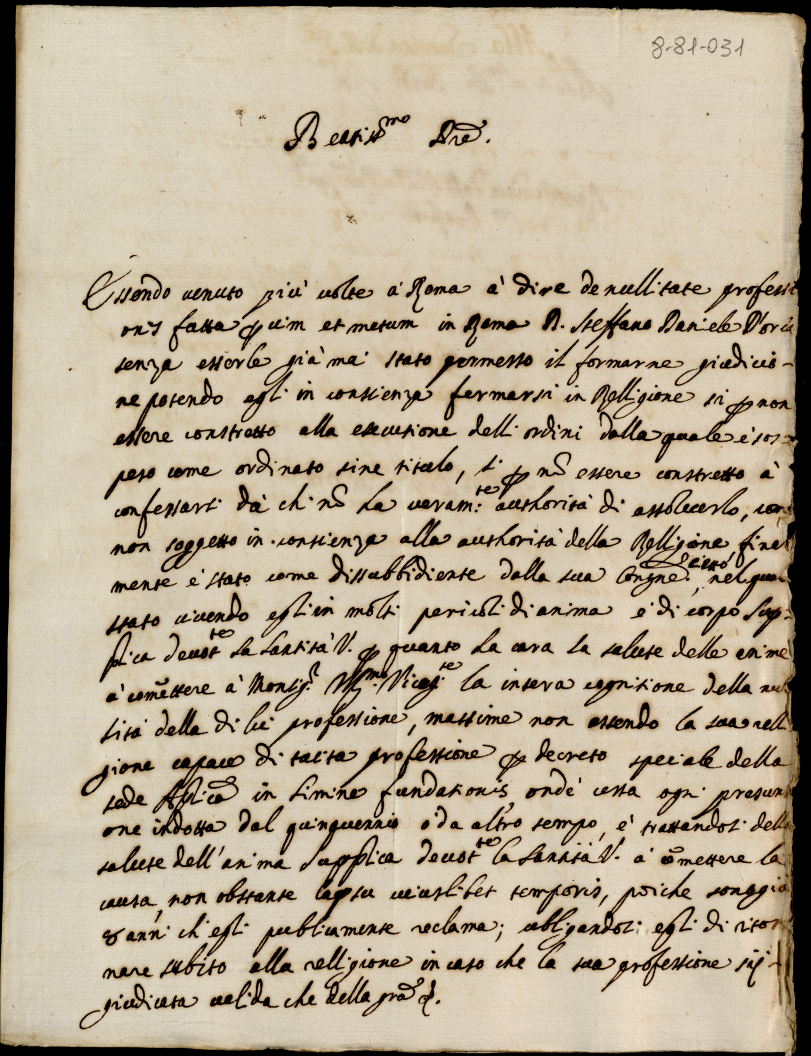 8-81-031
Beatiss.mo Pre.
Essendo venuto più volte à Roma à dire de nullitate professi
onis fatta per vim et metum in Roma D. Steffano Daniele
senza esserle già mai stato permesso il formarne giudicio
ne potendo egli in conscienza fermarsi in Relligione si per non
essere constretto alla essecutione delli ordini dalla quale è sos=
peso come ordinato sine titulo, si per nõ essere constretto à
confessarsi dà chi nõ ha veram.te authorità di assolverlo, com
non soggetto in conscienza alla authorità della Relligione final
mente è stato come dissubbidiente dalla sua Congne eietto, nel qual
stato vivendo egli in molti pericoli di anima e di corpo sup=
plica devot.te la Santità V. per quanto ha cara la salute delle anime
à comettere à Monsig.r Viceg.te la intera cognitione della nul
lità della di lui professione, massime non essendo la sua relli
gione capace di tacita professione per decreto speciale della
sede Aplica in limine fundationis onde cessa ogni presunti
one indotta dal quinquennio ò da altro tempo, è trattandosi della
salute dell'anima supplica devot.te la Santità V. à cõmettere la
causa, non obstante lapsu cuiuslibet temporis, poiche sono già
8 anni ch'egli publicamente reclama; obligandosi egli di ritor
nare subito alla relligione in caso che la sua professione sij
giudicata valida che della gra.